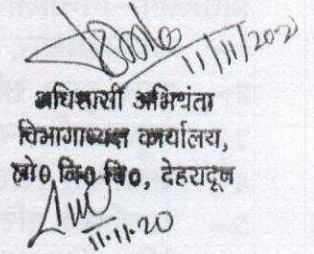 11/11/2021
अधिशासी अभियंता
विभागाध्यक्ष कार्यालय,
लो० नि० वि०, देहरादून
11.11.20